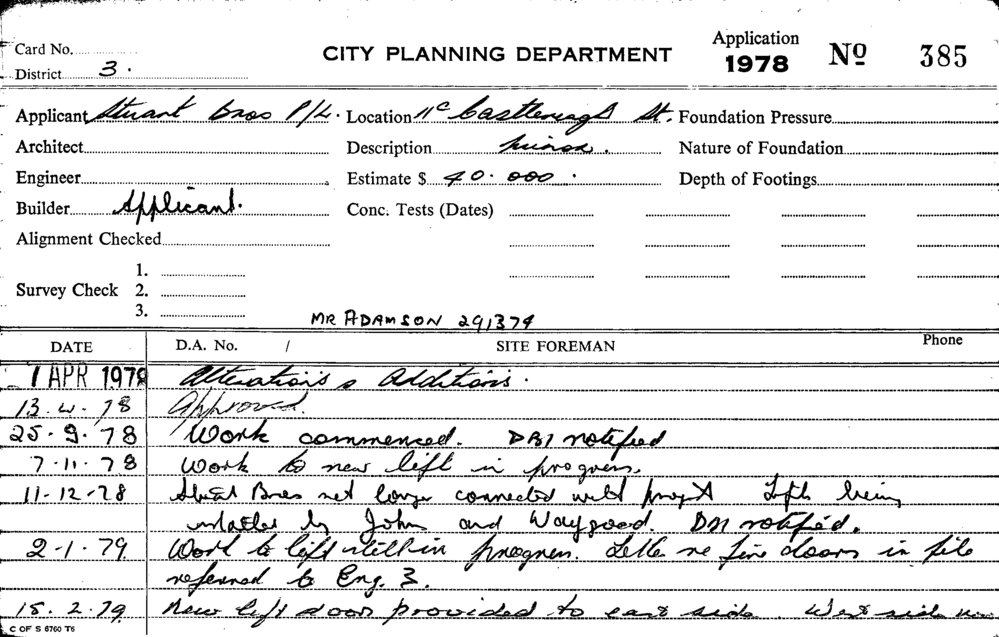 Card No.
CITY PLANNING DEPARTMENT
Application
1978
No 385
District 3.
Applicant Stuart Bros P/L. Location 11c Castlereagh St. Foundation Pressure
Architect Description minor. Nature of Foundation
Engineer Estimate $ 40.000. Depth of Footings
Builder Applicant. Conc. Tests (Dates)
Alignment Checked
1.
Survey Check 2.
3.
MR ADAMSON 291374
DATE D.A. No. / SITE FOREMAN Phone
1 APR 1978 Alterations & Additions.
13.4.78 Approved.
25.9.78 Work commenced. DBI notified
7.11.78 Work to new lift in progress.
11-12-78 Stuart Bros not longer connected with project Lifts being
by Johns and Waygood. DBI notified.
2-1.79 Work to lift still in progress. Letter re fire doors in file
referred to Eng. 3.
15.2.79 New lift door provided to east side. West side
C OF S 6760 T6